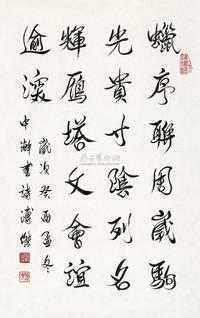 蠟序聯周歲駒
光貴寸陰列名
輝鴈塔文會誼
逾深
歲次癸酉孟冬
書 溥傑